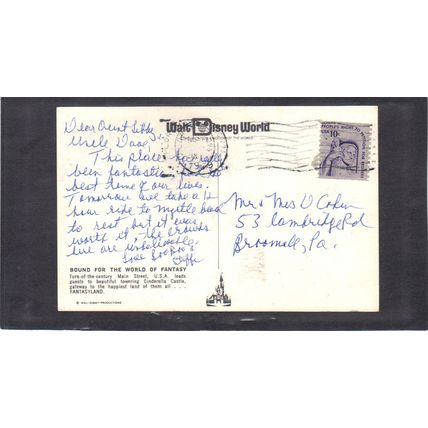 Dear Aunt Libby,
Uncle Dave,
This place has really
been fantastic,
best time of our lives.
Tomorrow we take a 12
hour ride to Myrtle
to rest but it was
worth it, the crowds
here are unbelievable.
Love
Walt Disney World
PEOPLE'S RIGHT TO
USA 10c
Mr & Mrs D Cohen
53 Cambridge Rd
Broomall, Pa.
BOUND FOR THE WORLD OF FANTASY
Turn-of-the-century Main Street, U.S.A. leads
guests to beautiful towering Cinderella Castle,
gateway to the happiest land of them all . . . .
FANTASYLAND.
© WALT DISNEY PRODUCTIONS